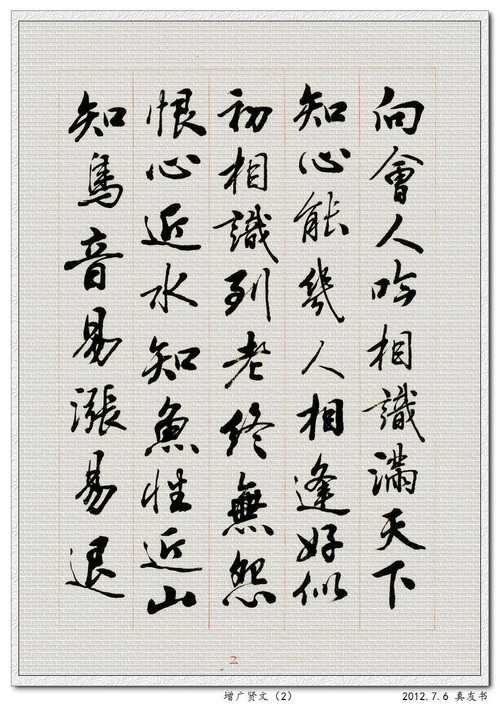 向會人吟相識滿天下
知心能幾人相逢好似
初相識到老終無怨
恨心近水知魚性近山
知鳥音易漲易退
2
增广贤文（2）
2012.7.6 真友书